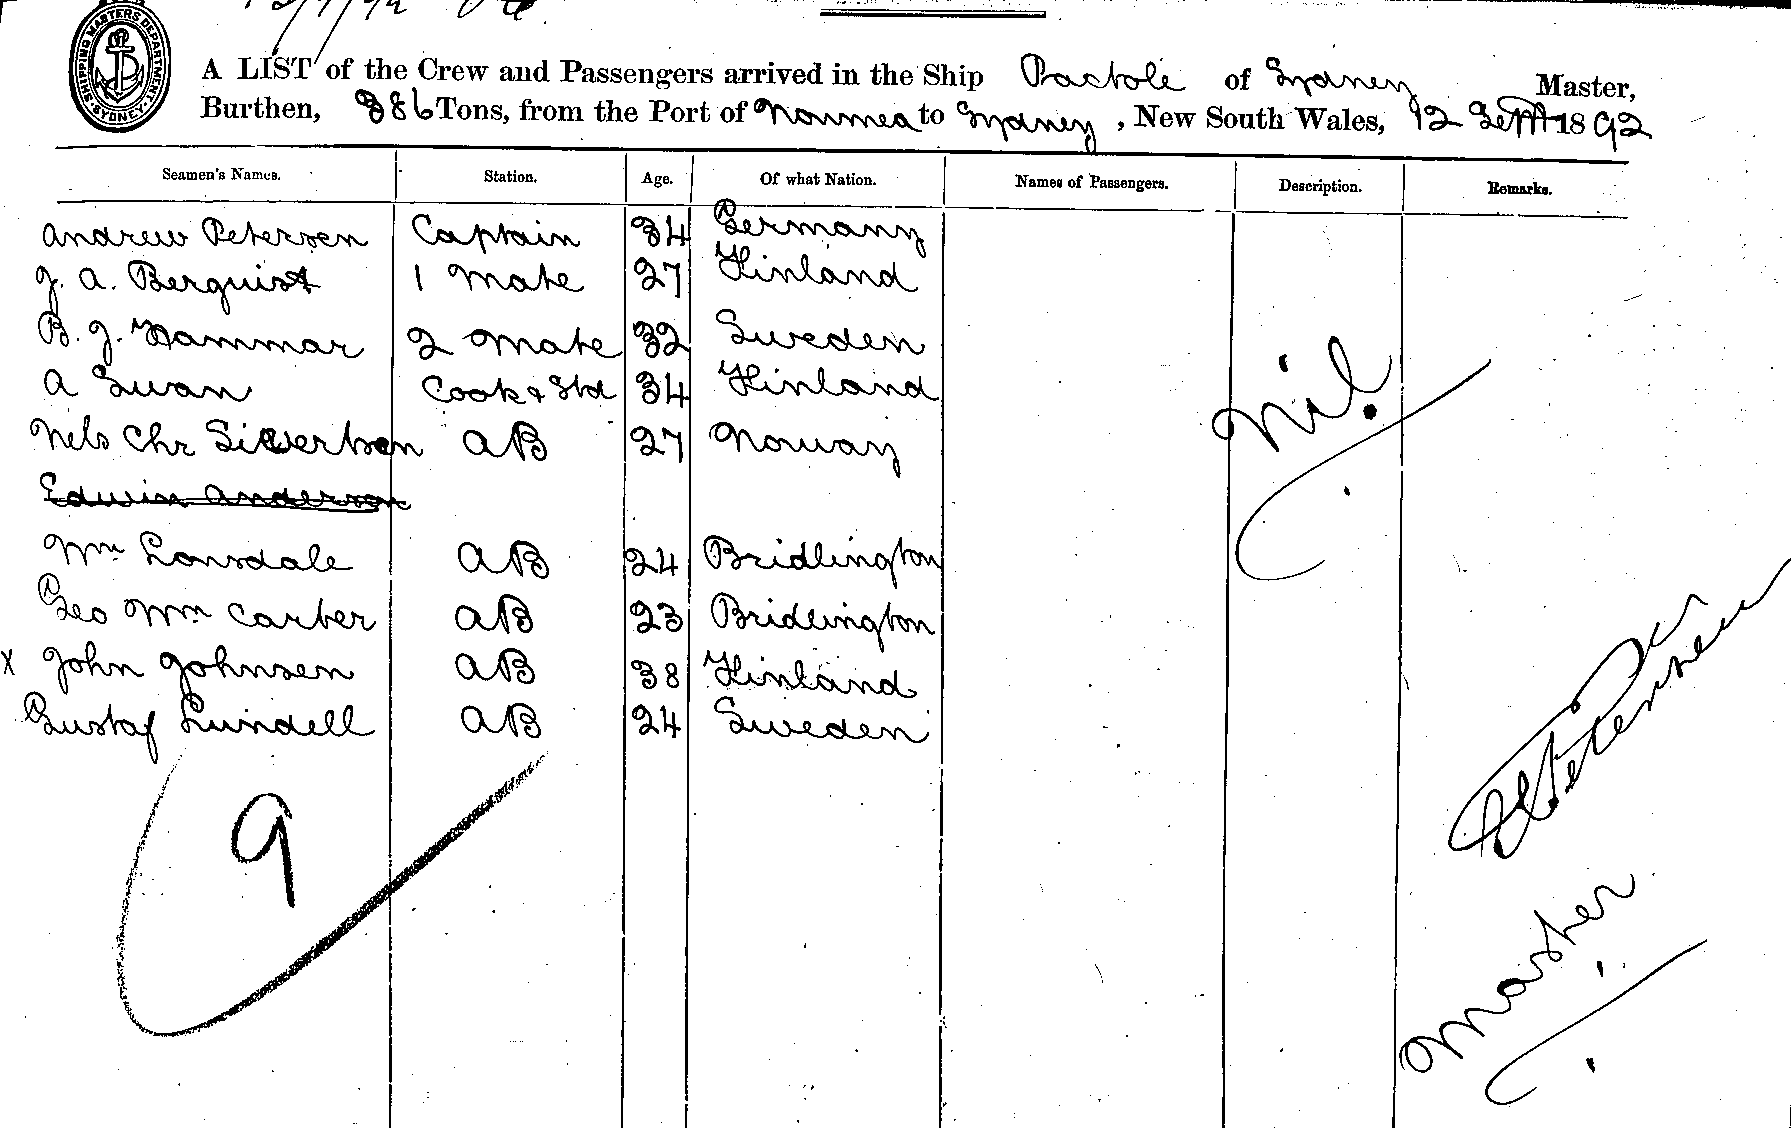 SHIPPING MASTERS DEPARTMENT SYDNEY
A LIST of the Crew and Passengers arrived in the Ship Pactole of Sydney Master,
Burthen, 386 Tons, from the Port of Noumea to Sydney, New South Wales, 12 Sept 1892
Seamen's Names. Station. Age. Of what Nation. Names of Passengers. Description. Remarks.
Andrew Petersen Captain 34 Germany
J. A. Berquist 1 Mate 27 Finland
B. J. Hammar 2 Mate 32 Sweden
A Swan Cook & Std 34 Finland
Nels Chr Sivertsen AB 27 Norway
Edwin Anderson
Wm Lonsdale AB 24 Bridlington
Geo Wm Carter AB 23 Bridlington
x John Johnsen AB 38 Finland
Gustaf Lundell AB 24 Sweden
Nil.
9
Petersen
Master